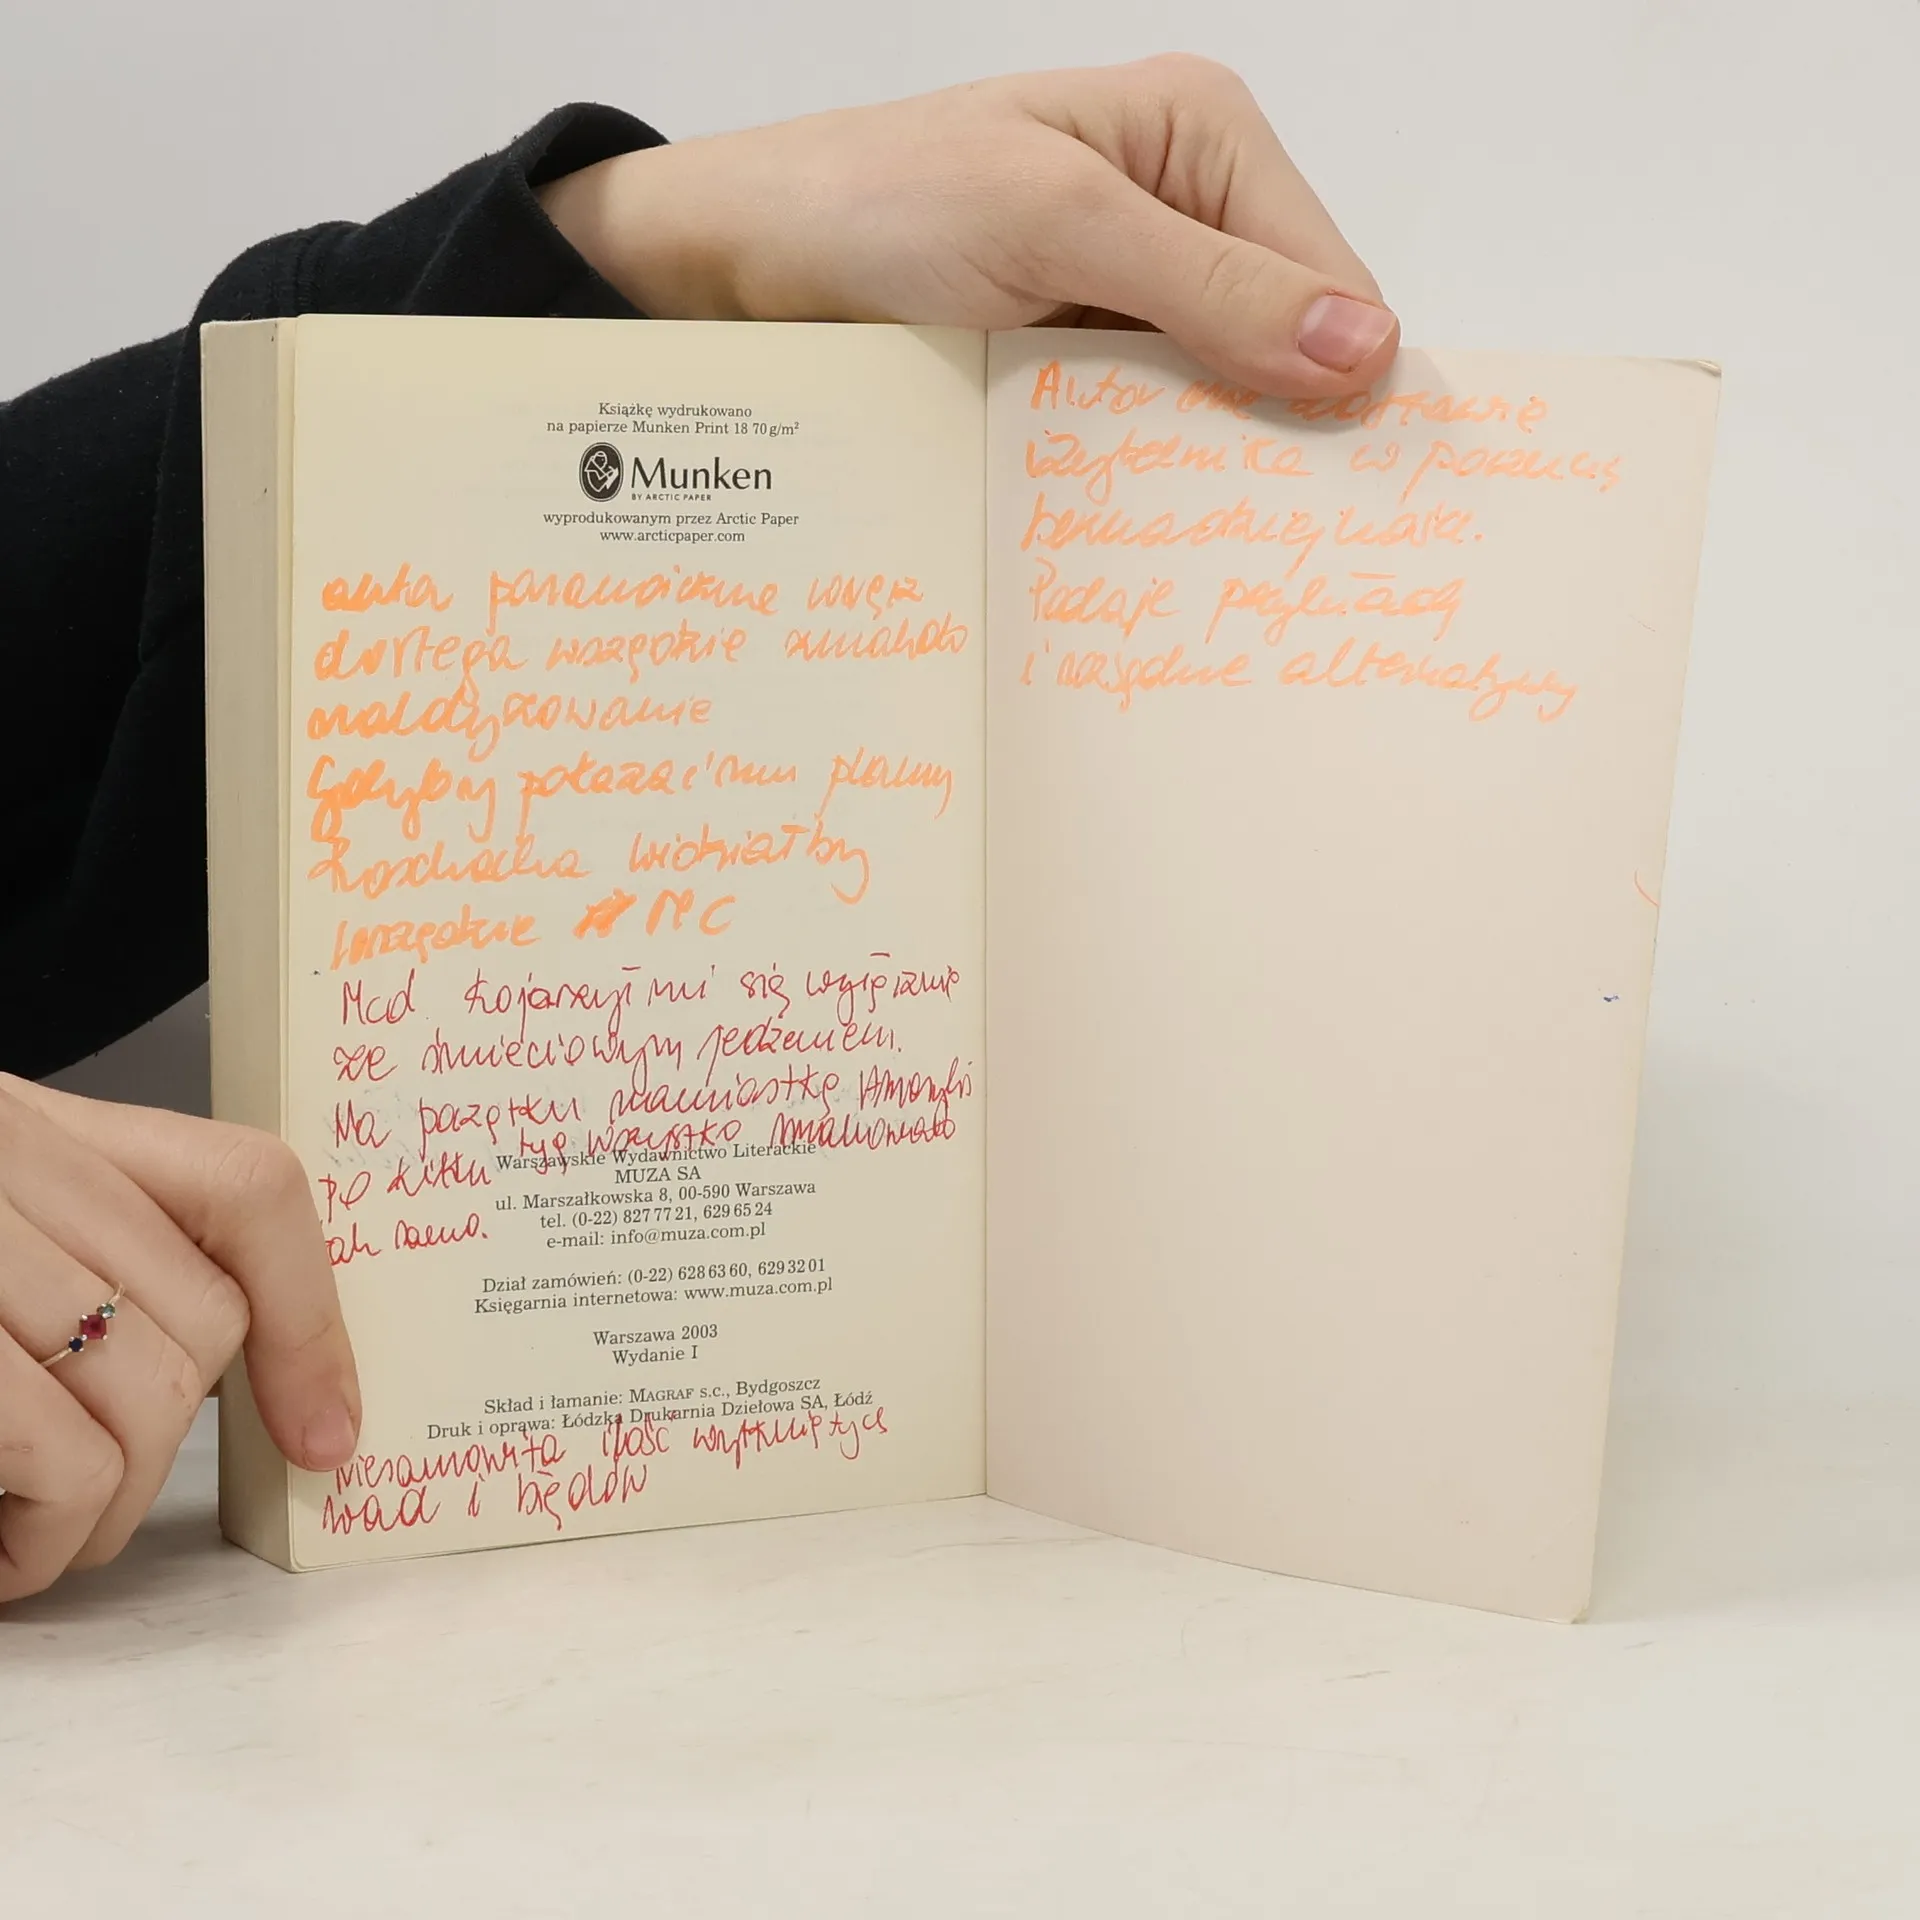 Książkę wydrukowano
na papierze Munken Print 18 70 g/m²
Munken
BY ARCTIC PAPER
wyprodukowanym przez Arctic Paper
www.arcticpaper.com
autor paranoicznie wręcz
dostrega wszędzie
macdyzowanie
Gdyby pokazać mu plamy
Roschacha widziałby
wszędzie MC
Mcd kojarzył mi się wyłącznie
ze śmieciowym jedzeniem.
Na początku namiastkę Ameryki
po kilku tyg wszystko smakowało
tak samo.
Warszawskie Wydawnictwo Literackie
MUZA SA
ul. Marszałkowska 8, 00-590 Warszawa
tel. (0-22) 827 77 21, 629 65 24
e-mail: info@muza.com.pl
Dział zamówień: (0-22) 628 63 60, 629 32 01
Księgarnia internetowa: www.muza.com.pl
Warszawa 2003
Wydanie I
Skład i łamanie: MAGRAF s.c., Bydgoszcz
Druk i oprawa: Łódzka Drukarnia Dziełowa SA, Łódź
Niesamowita ilość wytkniętych
wad i błędów
Autor nie zostawia
czytelnika w poczuciu
beznadziejności.
Podaje przykłady
i rozsądne alternatywy